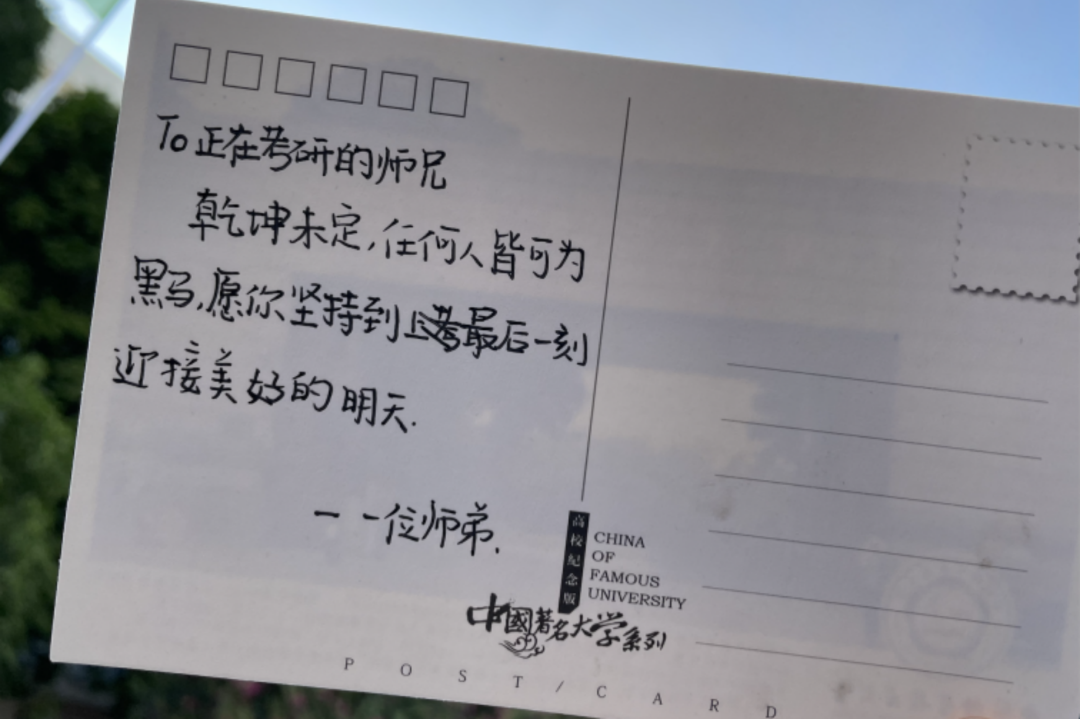 To 正在考研的师兄
乾坤未定,任何人皆可为
黑马,愿你坚持到考最后一刻
迎接美好的明天.
一一位师弟.
高校纪念版
CHINA
OF
FAMOUS
UNIVERSITY
中國著名大学系列
POST/CARD